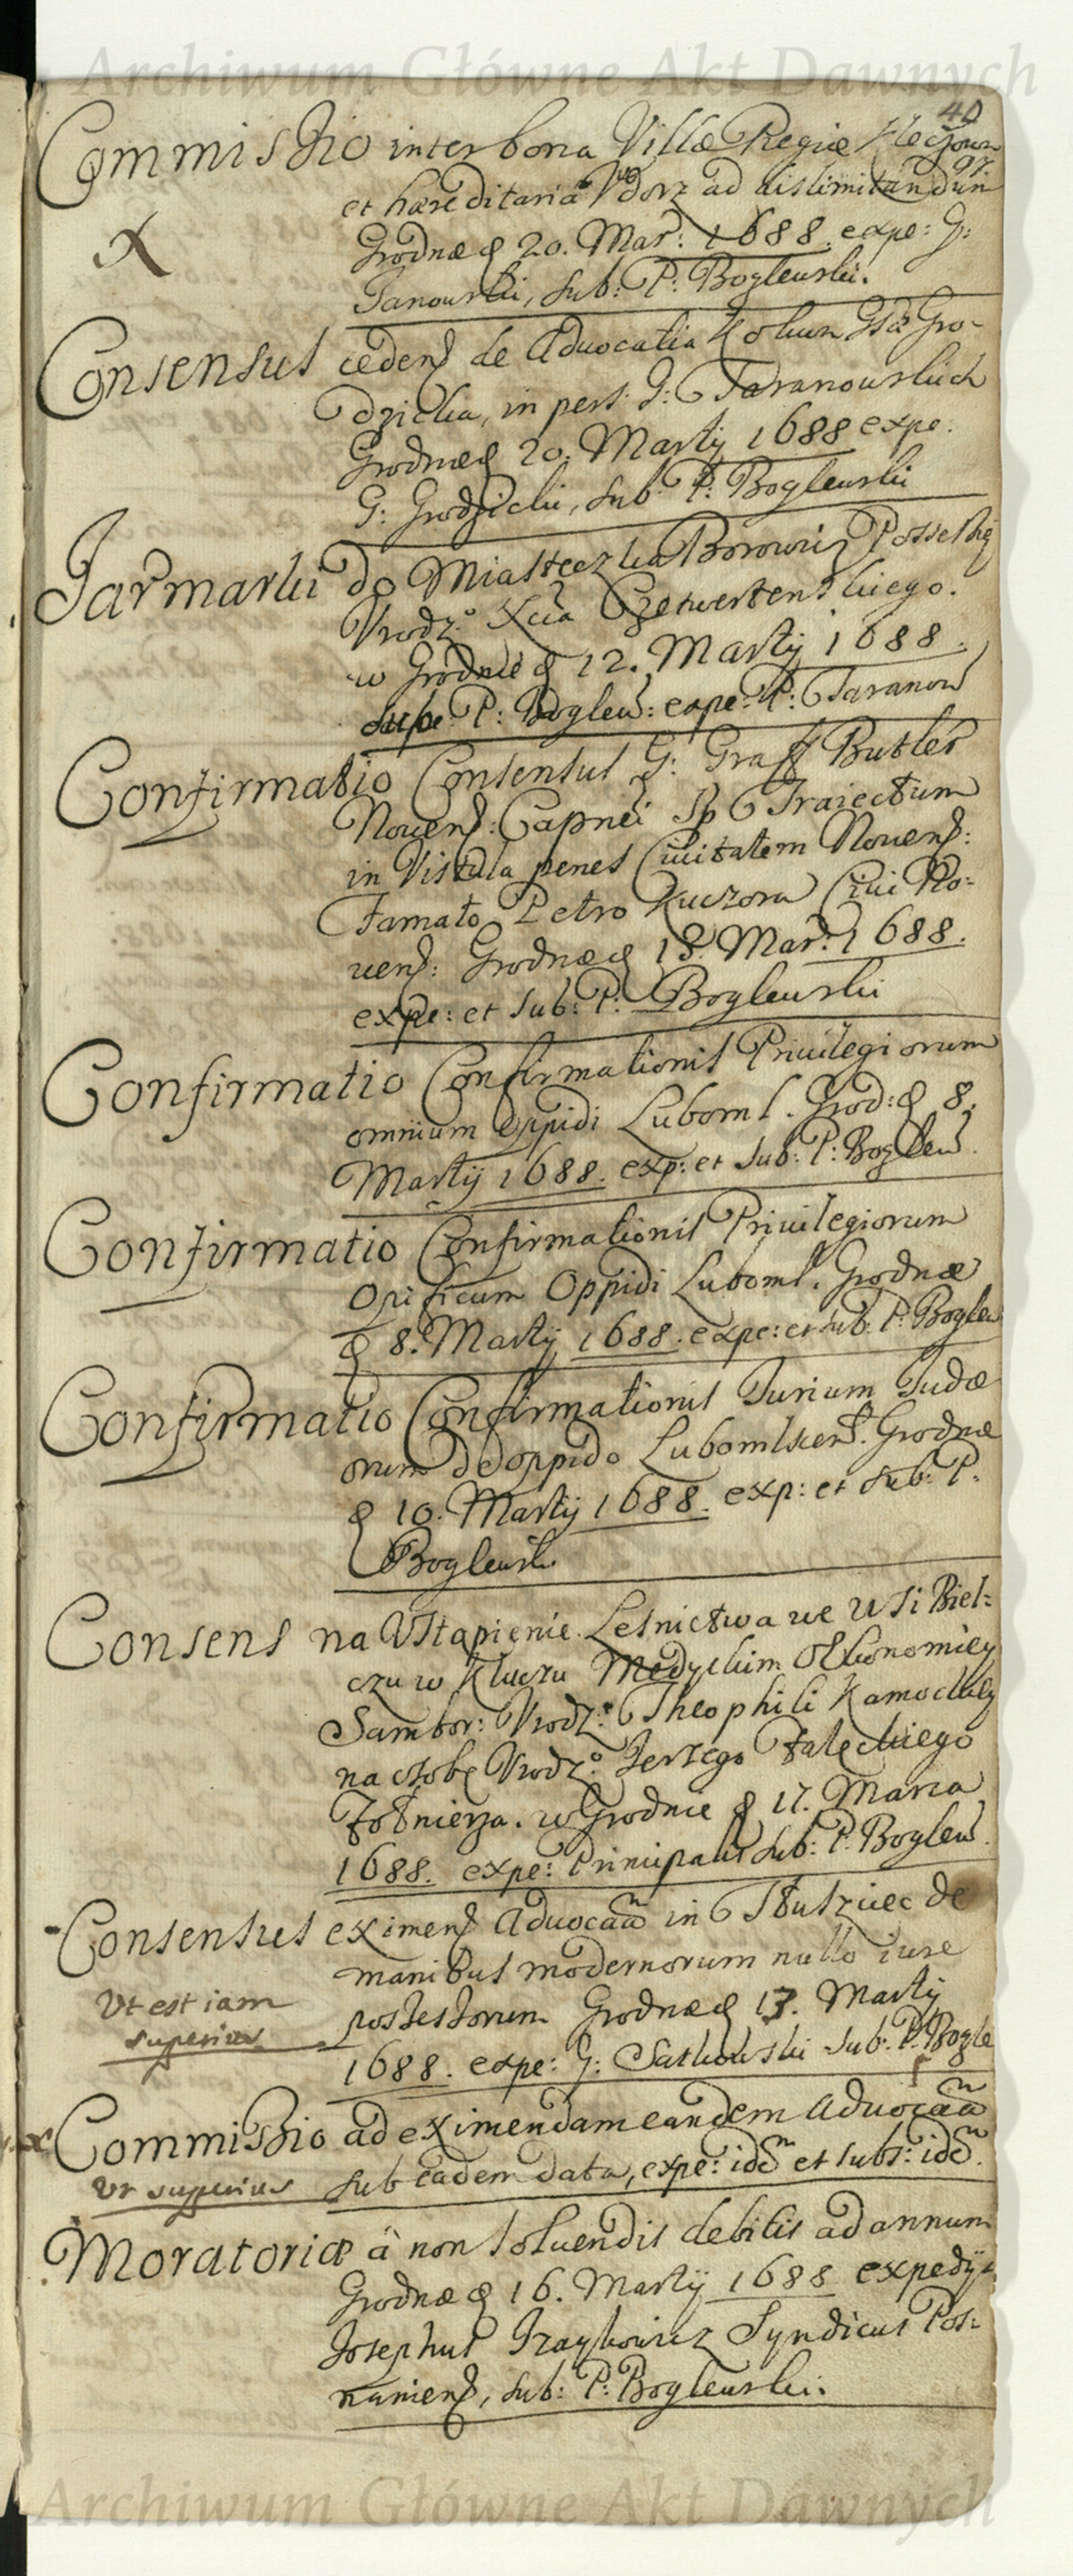 Archiwum Główne Akt Dawnych
40
Commissio inter bona Villæ Regiæ
97.
et hæreditaria ad dislimitandum
X
Grodnæ d 20. Mar: 1688. expe: G:
Taranowski, sub: P: Boglewski.
Consensus cedend de Advocatia Gro-
dzicka, in pers: G: Taranowskich
Grodnæ d 20. Martij 1688 expe:
G: Grodzicki, sub: P: Boglewski
Jarmarki do Miasteczka Borowicz Possessię
Vrodz:o Xcia Czetwertenskiego.
w Grodnie d 12. Martij 1688.
sub: P: Boglew: expe: P: Taranow
Confirmatio Consensus G: Graff Butler
Novens: Capnei Sp Traiectum
in Vistula penes Civitatem Novens:
Famato Petro Kuczora Civi No-
vens: Grodnæ d 18. Mar: 1688.
expe: et sub: P: Boglewski
Confirmatio Confirmationis Privilegiorum
omnium Oppidi Luboml. Grod: d 8.
Martij 1688. exp: et sub: P: Boglew.
Confirmatio Confirmationis Privilegiorum
Opificum Oppidi Luboml. Grodnæ
d 8. Martij 1688. expe: et sub: P: Boglew
Confirmatio Confirmationis Jurium Judæ
orum de oppido Lubomlscen. Grodnæ
d 10. Martij 1688. exp: et sub: P.
Boglewsk
Consens na Vstąpienie Lesnictwa we Wsi Biel-
czu w Kluczu Medyckim Œkonomiey
Sambor: Vrodz:o Theophili Kamockiey
na osobę Vrodz:o Jerzego Faleckiego
Żołnierza. w Grodnie d 17. Marca
1688. expe: Principalis sub: P: Boglew.
Consensus eximend Advocãa in Tłuszciec de
manibus modernorum nullo iure
Vt est iam
superius
possessorum Grodnæ d 17. Martij
1688. expe: G: Satkowski sub: P: Bogle
x Commissio ad eximendam eandem Advocãa
Vt superius
sub eadem data, expe: idem et subs: idem.
Moratoriæ à non solvendis debitis ad annum
Grodnæ d 16. Martij 1688 expedijt
Josephus Syndicus Pos-
naniens, sub: P: Boglewski.
Archiwum Główne Akt Dawnych